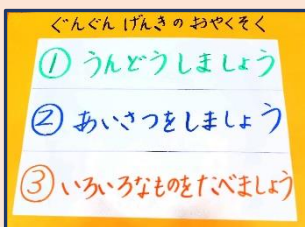 ぐんぐん げんきの おやくそく
① うんどうしましょう
② あいさつをしましょう
③ いろいろなものをたべましょう